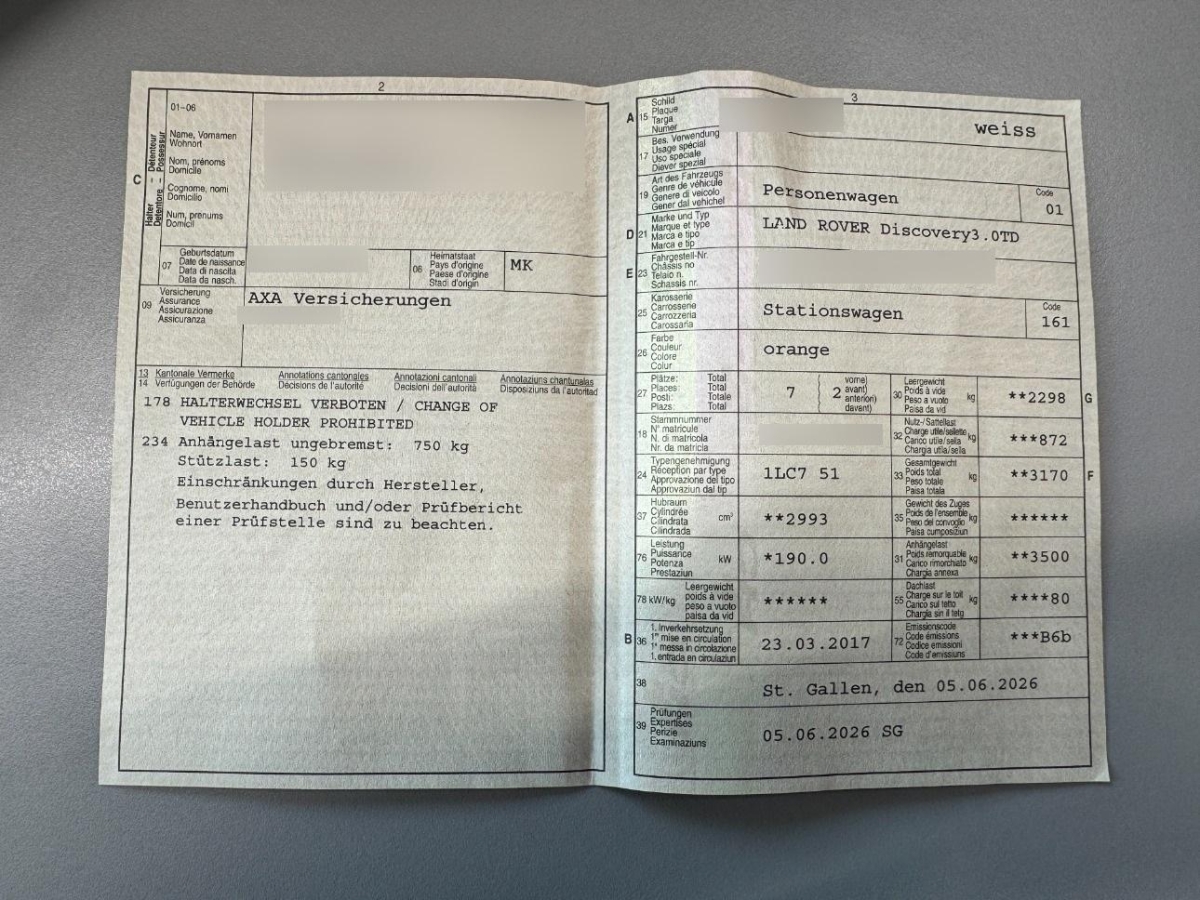 2
C
Halter - Détenteur
Detentore - Possessur
01-06
Name, Vornamen
Wohnort
Nom, prénoms
Domicile
Cognome, nomi
Domicilio
Num, prenums
Domicil
07
Geburtsdatum
Date de naissance
Data di nascita
Data da nasch.
08
Heimatstaat
Pays d'origine
Paese d'origine
Stadi d'origin
MK
09
Versicherung
Assurance
Assicurazione
Assicuranza
AXA Versicherungen
13 Kantonale Vermerke Annotations cantonales Annotazioni cantonali Annotaziuns chantunalas
14 Verfügungen der Behörde Décisions de l'autorité Decisioni dell'autorità Disposiziuns da l'autoritad
178 HALTERWECHSEL VERBOTEN / CHANGE OF
VEHICLE HOLDER PROHIBITED
234 Anhängelast ungebremst: 750 kg
Stützlast: 150 kg
Einschränkungen durch Hersteller,
Benutzerhandbuch und/oder Prüfbericht
einer Prüfstelle sind zu beachten.
3
A 15
Schild
Plaque
Targa
Numer
weiss
17
Bes. Verwendung
Usage spécial
Uso speciale
Diever spezial
19
Art des Fahrzeugs
Genre de véhicule
Genere di veicolo
Gener dal vehichel
Personenwagen
Code
01
D 21
Marke und Typ
Marque et type
Marca e tipo
Marca e tip
LAND ROVER Discovery3.0TD
E 23
Fahrgestell-Nr.
Châssis no
Telaio n.
Schassis nr.
25
Karosserie
Carrosserie
Carrozzeria
Carossaria
Stationswagen
Code
161
26
Farbe
Couleur
Colore
Colur
orange
27
Plätze: Total
Places: Total
Posti: Totale
Plazs: Total
7
2
vorne)
avant)
anteriori)
davant)
30
Leergewicht
Poids à vide
Peso a vuoto
Paisa da vid
kg
**2298
G
18
Stammnummer
N° matricule
N. di matricola
Nr. da matricla
32
Nutz-/Sattellast
Charge utile/sellette
Carico utile/sella
Chargia utila/sella
kg
***872
24
Typengenehmigung
Réception par type
Approvazione del tipo
Approvaziun dal tip
1LC7 51
33
Gesamtgewicht
Poids total
Peso totale
Paisa totala
kg
**3170
F
37
Hubraum
Cylindrée
Cilindrata
Cilindrada
cm³
**2993
35
Gewicht des Zuges
Poids de l'ensemble
Peso del convoglio
Paisa cumposiziun
kg
******
76
Leistung
Puissance
Potenza
Prestaziun
kW
*190.0
31
Anhängelast
Poids remorquable
Carico rimorchiato
Chargia annexa
kg
**3500
78 kW/kg
Leergewicht
poids à vide
peso a vuoto
paisa da vid
******
55
Dachlast
Charge sur le toit
Carico sul tetto
Chargia sin il tetg
kg
****80
B 36
1. Inverkehrsetzung
1re mise en circulation
1a messa in circolazione
1. entrada en circulaziun
23.03.2017
72
Emissionscode
Code émissions
Codice emissioni
Code d'emissiuns
***B6b
38
St. Gallen, den 05.06.2026
39
Prüfungen
Expertises
Perizie
Examinaziuns
05.06.2026 SG